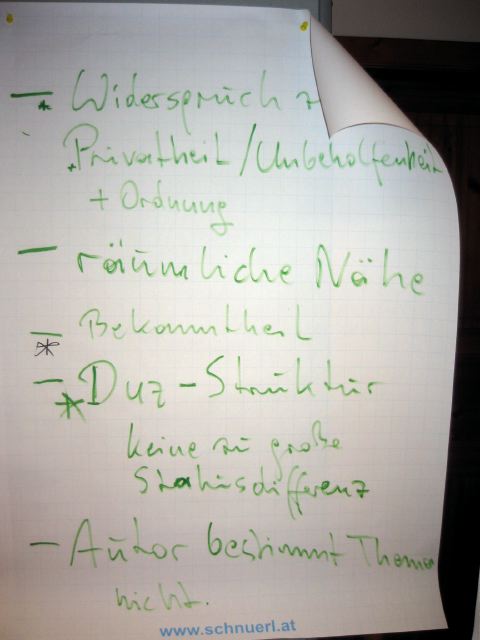 – * Widerspruch z
* Privatheit/Unbeholfenheit
+ Ordnung
– räumliche Nähe
– Bekanntheit
* – Duz-Struktur
*
keine zu große
Statusdifferenz
– Autor bestimmt Thema
nicht.
www.schnuerl.at